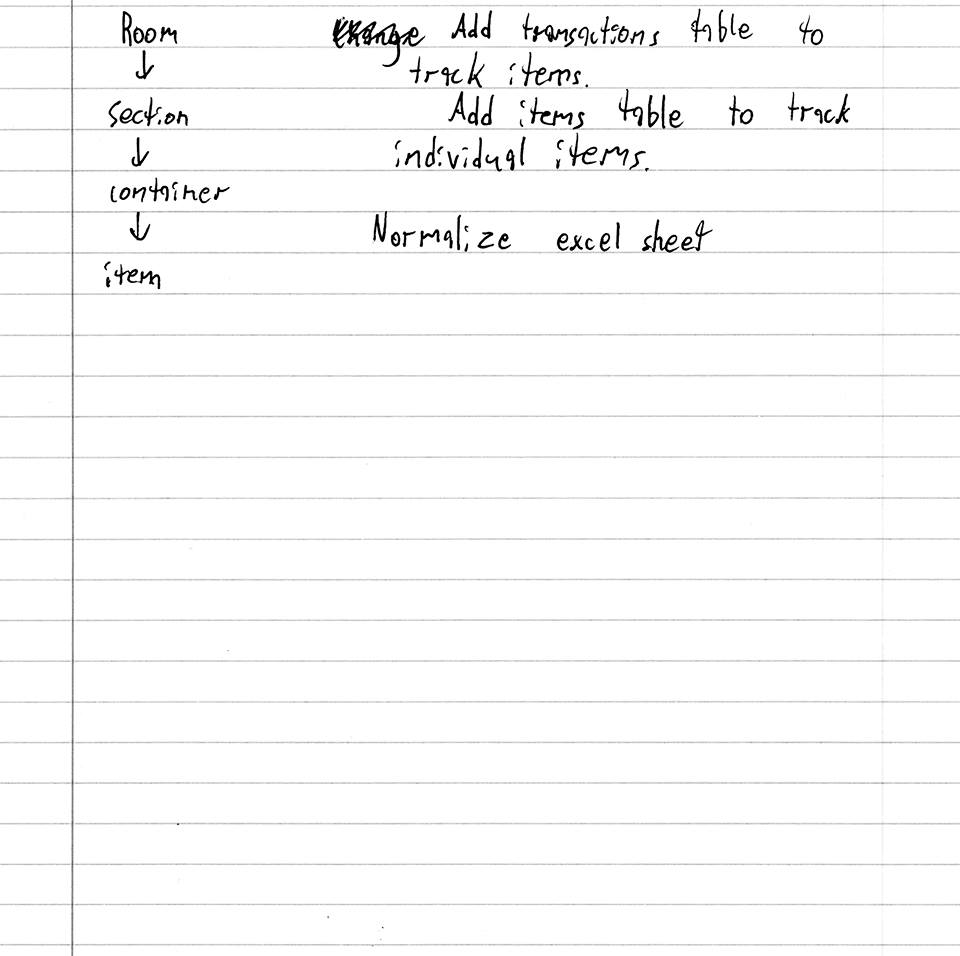 Room
↓
section
↓
container
↓
item
Add transactions table to
track items.
Add items table to track
individual items.
Normalize excel sheet